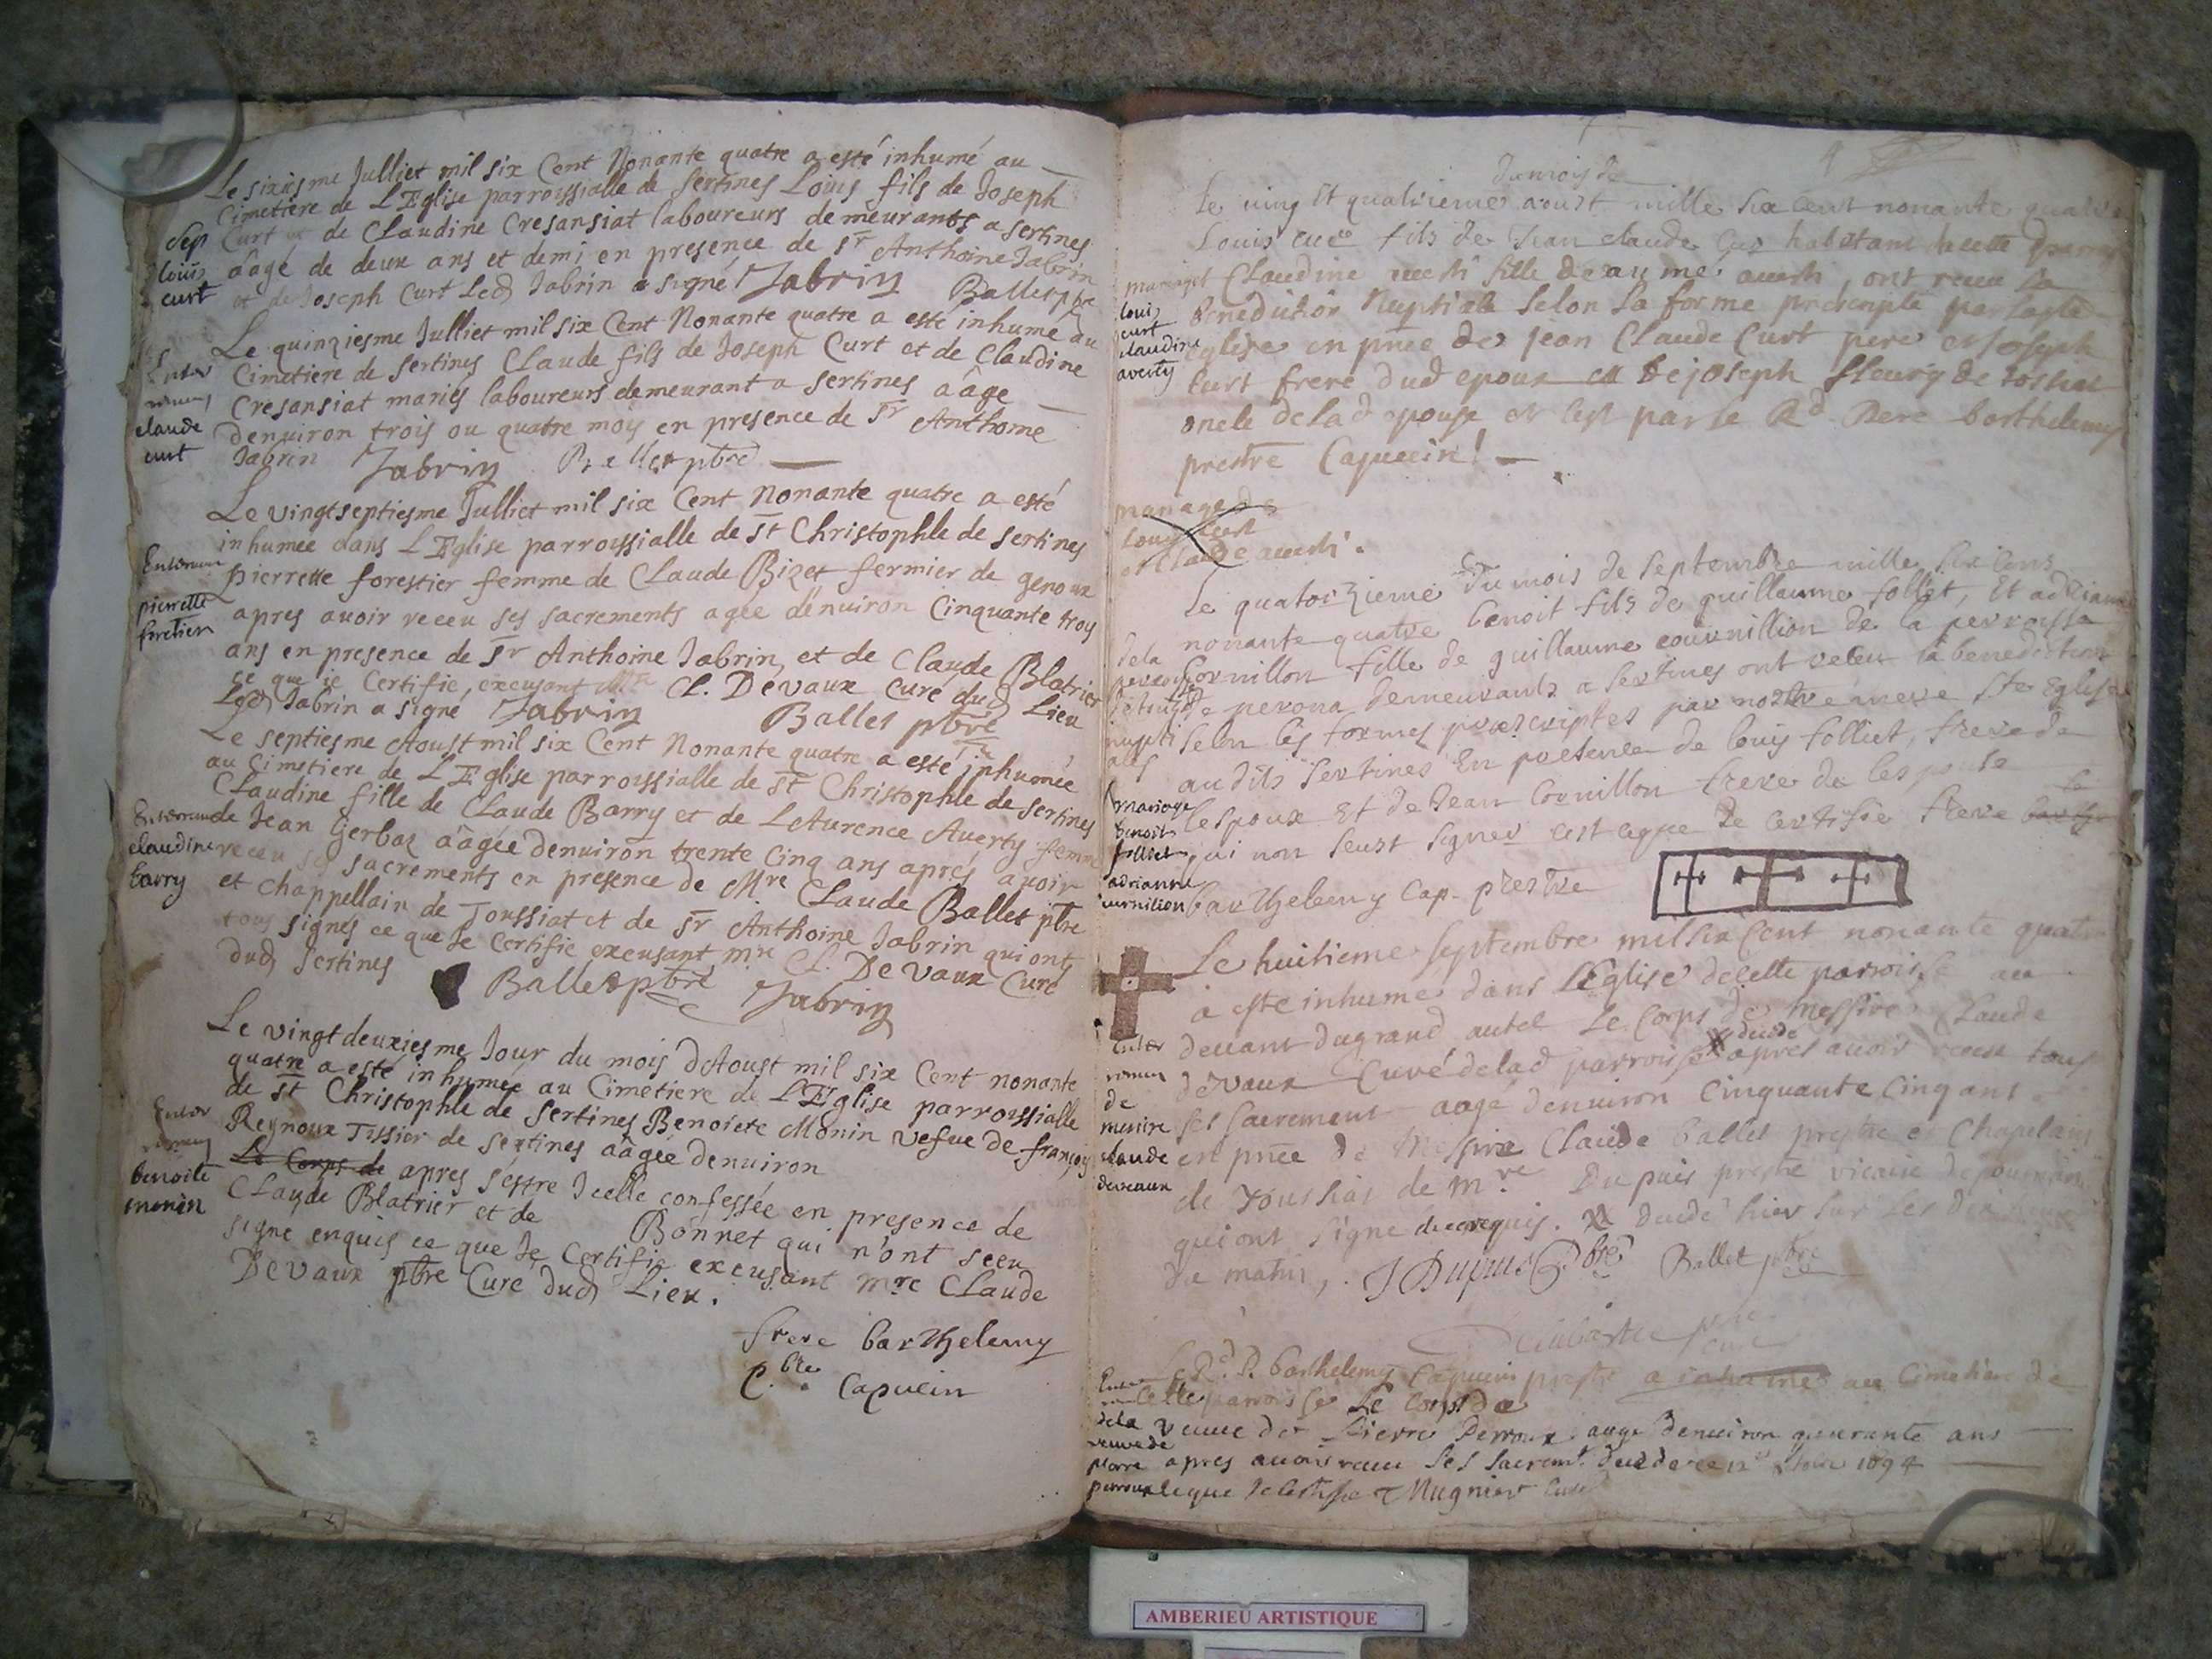 Le sixiesme Julliet mil six Cent Nonante quatre a esté inhumé au
Cimetiere de L'Eglise parroissialle de Sertines Louis fils de Joseph
Curt et de Claudine Cresansiat laboureurs demeurants a Sertines
aâgé de deux ans et demi en presence de Sr Anthoine Jabrin
et de Joseph Curt Led Jabrin a signé Jabrin Ballet pbre
Sep
louis
curt
Le quinziesme Julliet mil six Cent Nonante quatre a esté inhumé au
Cimetiere de Sertines Claude fils de Joseph Curt et de Claudine
Cresansiat mariés laboureurs demeurant a Sertines aâge
denuiron trois ou quatre moys en presence de Sr Anthoine
Jabrin Jabrin Ballet pbre
Enter
claude
curt
Le vingtseptiesme Julliet mil six Cent Nonante quatre a esté
inhumée dans L'Eglise parroissialle de St Christophle de Sertines
pierrette forestier femme de Claude Bizet fermier de genoux
apres auoir receu ses sacrements agée d'enuiron Cinquante troys
ans en presence de Sr Anthoine Jabrin, et de Claude Blatrier
ce que je Certifie, excusant Mre Cl. Devaux Curé dud Lieu
Led Jabrin a signé Jabrin Ballet pbre
pierrette
foretier
Le septiesme Aoust mil six Cent Nonante quatre a esté inhumée
au Cimetiere de L'Eglise parroissialle de St Christophle de Sertines
Claudine fille de Claude Barry et de LAurence Auerty femme
de Jean Gerbaz aâgée denuiron trente Cinq ans aprés auoir
receu ses sacrements en presence de Mre Claude Ballet pbre
et chappellain de Toussiat et de Sr Anthoine Jabrin qui ont
tous signés ce que Je Certifie excusant mre Cl. DeVaux Curé
dud Sertines Ballet pbre Jabrin
claudine
barry
Le vingtdeuxiesme Jour du mois dAoust mil six Cent nonante
quatre a esté inhumée au Cimetiere de L'Eglise parroissialle
de St Christophle de Sertines Benoiete Monin vefue de françoys
Reynoux Tissier de Sertines aâgée denuiron
Le Corps de apres s'estre Jcelle confessée en presence de
Claude Blatrier et de Bonnet qui n'ont sceu
signe enquis ce que Je Certifie excusant mre Claude
Devaux pbre Curé dud Lieu.
benoite
monin
frere barthelemy
P.bre Capucin
du mois de
Le ving et quatrieme aoust mille six cent nonante quatre
Louis curt fils de Jean claude curt habitant de cette
Claudine auerti fille de aymé auerti, ont receu la
benediction Nuptiale selon la forme prescripte par
eglise en pnce de Jean Claude Curt pere et Joseph
Curt frere dud epoux et de joseph fleury de tossiat
oncle de lad epouse et cest par le Rd Pere barthelemy
prestre Capucin
mariage
louis
curt
claudine
averty
mariage de
Louis curt
et Claude auerti.
Le quatorzieme du mois de septembre mille six cens
nonante quatre benoit fils de guillaume folliet, Et adriane
Cornillon fille de guillaume cournillion de la perrousse
de perona demeurants a sertines ont receu la benediction
selon les formes prescriptes par nostre mere ste Eglise
audits sertines En presence de louis folliet, frere de
lespoux Et de Jean Cornillon frere de lespouse
qui non seust signer cest ceque Je certifie frere
barthelemy cap. prestre
mariage
benoit
folliet
adrianne
curnilion
Le huitieme septembre mil six Cent nonante quatre
a esté inhumé dans l'Eglise decette parroisse au
deuant du grand autel Le Corps de Messire Claude
devaux Curé delad parroisse X apres auoir receu tous
ses sacrement aagé denuiron cinquante cinq ans
en pnce de Messire Claude ballet prestre et Chapelain
de Toussias de mre Dupuis prestre vicaire de
qui ont signé de ce requis. X decedé hier sur les dix
du matin, J Dupuis Pbre Ballet pbre
de
messire
claude
deveaux
Le Rd P. barthelemy Capucin prestre a inhumé au Cimetiere de
cette parroisse Le Corps de
la veuue de Pierre Perroux aagé denuiron quarante ans
apres auoir receu ses sacremts 1694
ceque Je Certifie Mugnier Curé
dela
veuve de
pierre
perroux
AMBERIEU ARTISTIQUE